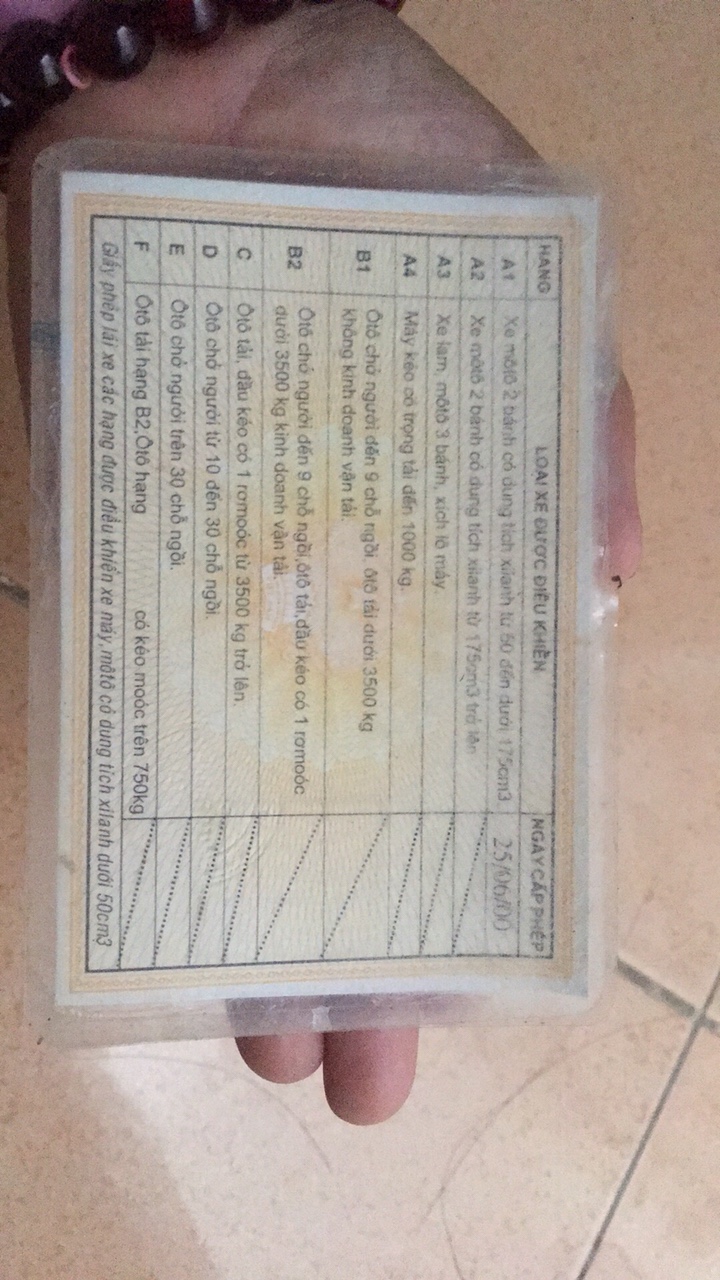 HẠNG LOẠI XE ĐƯỢC ĐIỀU KHIỂN NGÀY CẤP PHÉP
A1 Xe môtô 2 bánh có dung tích xilanh từ 50 đến dưới 175cm3 25/06/00
A2 Xe môtô 2 bánh có dung tích xilanh từ 175cm3 trở lên
A3 Xe lam, môtô 3 bánh, xích lô máy.
A4 Máy kéo có trọng tải đến 1000 kg.
B1 Ôtô chở người đến 9 chỗ ngồi, ôtô tải dưới 3500 kg
không kinh doanh vận tải.
B2 Ôtô chở người đến 9 chỗ ngồi,ôtô tải,đầu kéo có 1 rơmoóc
dưới 3500 kg kinh doanh vận tải.
C Ôtô tải, đầu kéo có 1 rơmoóc từ 3500 kg trở lên.
D Ôtô chở người từ 10 đến 30 chỗ ngồi.
E Ôtô chở người trên 30 chỗ ngồi.
F Ôtô tải hạng B2,Ôtô hạng có kéo moóc trên 750kg
Giấy phép lái xe các hạng được điều khiển xe máy,môtô có dung tích xilanh dưới 50cm3